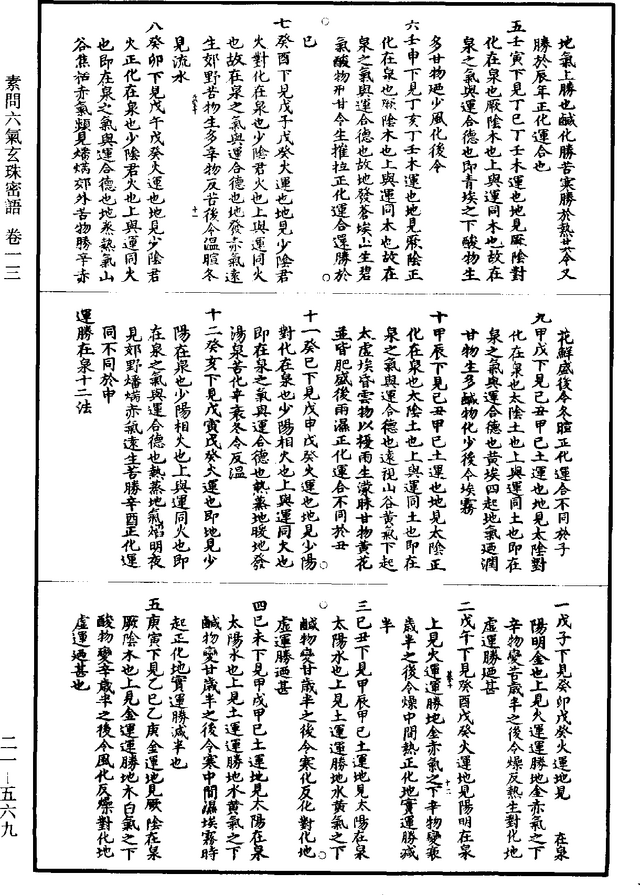 地氣上勝也鹹化勝苦寒勝於熱其令又
勝於辰年正化運合也
五壬寅下見丁巳丁壬木運也地見厥陰對
化在泉也厥陰木也上與運同木也故在
泉之氣與運合德也即青埃之下酸物生
多甘物迺少風化後令
六壬申下見丁亥丁壬木運也地見厥陰正
化在泉也厥陰木也上與運同木也故在
泉之氣與運合德也故地發蒼埃山生碧
氣酸物刑甘令生摧拉正化運合還勝於
巳
七癸酉下見戊子戊癸火運也地見少陰君
火對化在泉也少陰君火也上與運同火
也故在泉之氣與運合德也地發赤氣遠
生郊野苦物生多辛物反苦後令溫暄冬
見流水
八癸卯下見戊午戊癸火運也地見少陰君
火正化在泉也少陰君火也上與運同火
也即在泉之氣與運合德也地蒸熱氣山
谷焦枯赤氣類見燔焫郊外苦物勝辛赤
花鮮盛後令冬暄正化運合不同於子
九甲戌下見己丑甲己土運也地見太陰對
化在泉也太陰土也上與運同土也即在
泉之氣與運合德也黃埃四起地氣迺潤
甘物生多鹹物化少後令埃霧
十甲辰下見己丑甲己土運也地見太陰正
化在泉也太陰土也上與運同土也即在
泉之氣與運合德也遠視山谷黃氣下起
太虛埃昏雲物以擾雨生濛脉甘物黃花
並皆肥盛後雨濕正化運合不同於丑
十一癸巳下見戊申戊癸火運也地見少陽
對化在泉也少陽相火也上與運同火也
即在泉之氣與運合德也熱蒸地脫地發
湯泉苦化辛衰冬令反溫
十二癸亥下見戊寅戊癸火運也即地見少
陽在泉也少陽相火也上與運同火也即
在泉之氣與運合德也熱蒸地氣焰明夜
見郊野燔焫赤氣遠生苦勝辛酉正化運
同不同於申
運勝在泉十二法
一戊子下見癸卯戊癸火運地見 在泉
陽明金也上見火運運勝地金赤氣之下
辛物變苦歲半之後令燥反熱生對化地
虛運勝迺甚
二戊午下見癸酉戊癸火運地見陽明在泉
上見火運運勝地金赤氣之下辛物變衰
歲半之後令燥中間熱正化地實運勝減
半
三己丑下見甲辰甲己土運地見太陽在泉
太陽水也上見土運運勝地水黃氣之下
鹹物變甘歲半之後令寒化反化對化地
虛運勝迺甚
四己未下見甲戌甲己土運地見太陽在泉
太陽水也上見土運運勝地水黃氣之下
鹹物變甘歲半之後令寒中間濕埃霧時
起正化地實運勝減半也
五庚寅下見乙巳乙庚金運地見厥陰在泉
厥陰木也上見金運運勝地木白氣之下
酸物變辛歲半之後令風化反燥對化地
虛運迺甚也
素問六氣玄珠密語 卷一三
二一—五六九